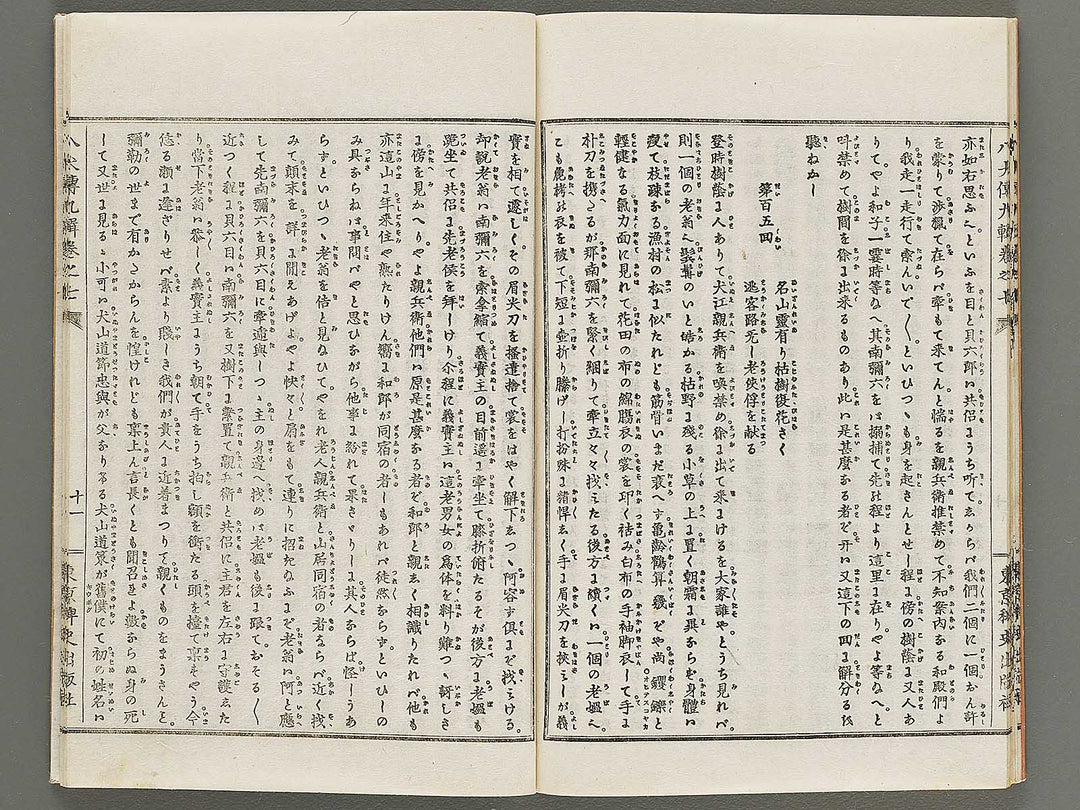 亦如右思ふたへといふを目と貝六郎が共侶にうち听てゑゝらバ我們二個に一個おん許
を蒙て渉獵て在らバ牽もて来てんと惴るを親兵衛推禁めて不知案內なる和殿們よ
り我走一走行て索んいで〳〵といひつゝも身を起さんとせし程に傍の樹蔭に又人あ
りてやよ和子一霎時等ねへ其南彌六をば搦捕て先程より這里に在りやよ等ねへと
呌禁めて樹間を徐に出来るものあり此は是甚麼なる者ぞ开は又這下の回に解分るを
聽ねかし
第百五回
名山靈有り枯樹復花さく
逃客路亡し老俠俘を献る
登時樹蔭に人ありて犬江親兵衛を喚禁め徐に出て来にけるを大家誰やとうち見れバ
則一個の老翁へ鬂髯のいと皓かる枯野に殘る小草の上に置く朝霜に異ならぞ身體は
瘦て枝疎なる漁村の松に似たれども筋骨いまだ衰へず亀齡鶴算幾ぞや尚矍鑠と
輕健なる氣力面に見れて花田の布の綿臈衣の裳を卬く褚み白布の手袖脚衣して手に
朴刀を携たるが那南彌六を緊く綑りて牽立々々找ゑたる後方に續くは一個の老媼へ
こも麁栲の衣を被て下短に壷折り騰げし打扮殊に精悍しく手に眉尖刀を挾しが義
實を相て遽しくその眉米刀を搔遣捨て裳をはやく解下ゑつゝ阿容す俱にぞ找ける
却說老翁は南彌六を索拿縮て義實主の目前遥に牽坐て膝折俯たるそが後方に老媼も
跪坐て共侶に先老侯を拜しけり介程に義實主は這老男女の爲体を料り難つゝ訝しさ
に傍を見かへりてやよ親兵衛他們は原是甚麼なる者ぞ和郎と親く相識りたれバ他も
亦這山に年来住や熟たりけん嚮に和郎が同宿の者しもあれバ徒然ならずといひしの
み具ならねバ事問バやと思ひながら他事に紛れて果さゞりしに其人ならバ怪しうあ
らずといひつゝ老翁を佶と見ぬひてやをれ老人親兵衛と山居同宿の者ならバ近く找
みて顛末を詳に聞えあげよやよ快々と扇をもて連りに招たねふまど老翁は阿と應
して先南彌六を貝六目に牽遞與しつゝ主の身邊へ找めバ老媼も後に跟ておそる〳〵
近つく程に貝六目は南彌六を又樹下に繫置て親兵衛と共侶に主君を左右に守護ゑた
り當下老翁は恭しく義實主にうち朝て手をうち拍し頭を衝たる頭を擡て稟そやう今
恁る瀨に逢ぎりせバ素より賤しき我們が貴人に近着まつりて親くものをまうさんと
彌勒の世まで有かたからんを惶けれども稟上ん言長くとも聞召ゑよ數ならぬ身の死
して又世に見るゝ小可は犬山道節忠與が父なりゑる犬山道策が舊僕にて初の姓名は
八犬傳九輯卷之七
十一
東京稗史出版社